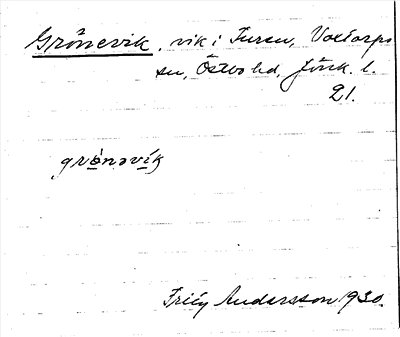 Grönevik, vik i Furen, Voxtorps
sn, Östbo hd, Jönk. l.
21.
grönəvik
Fritz Andersson 1930.